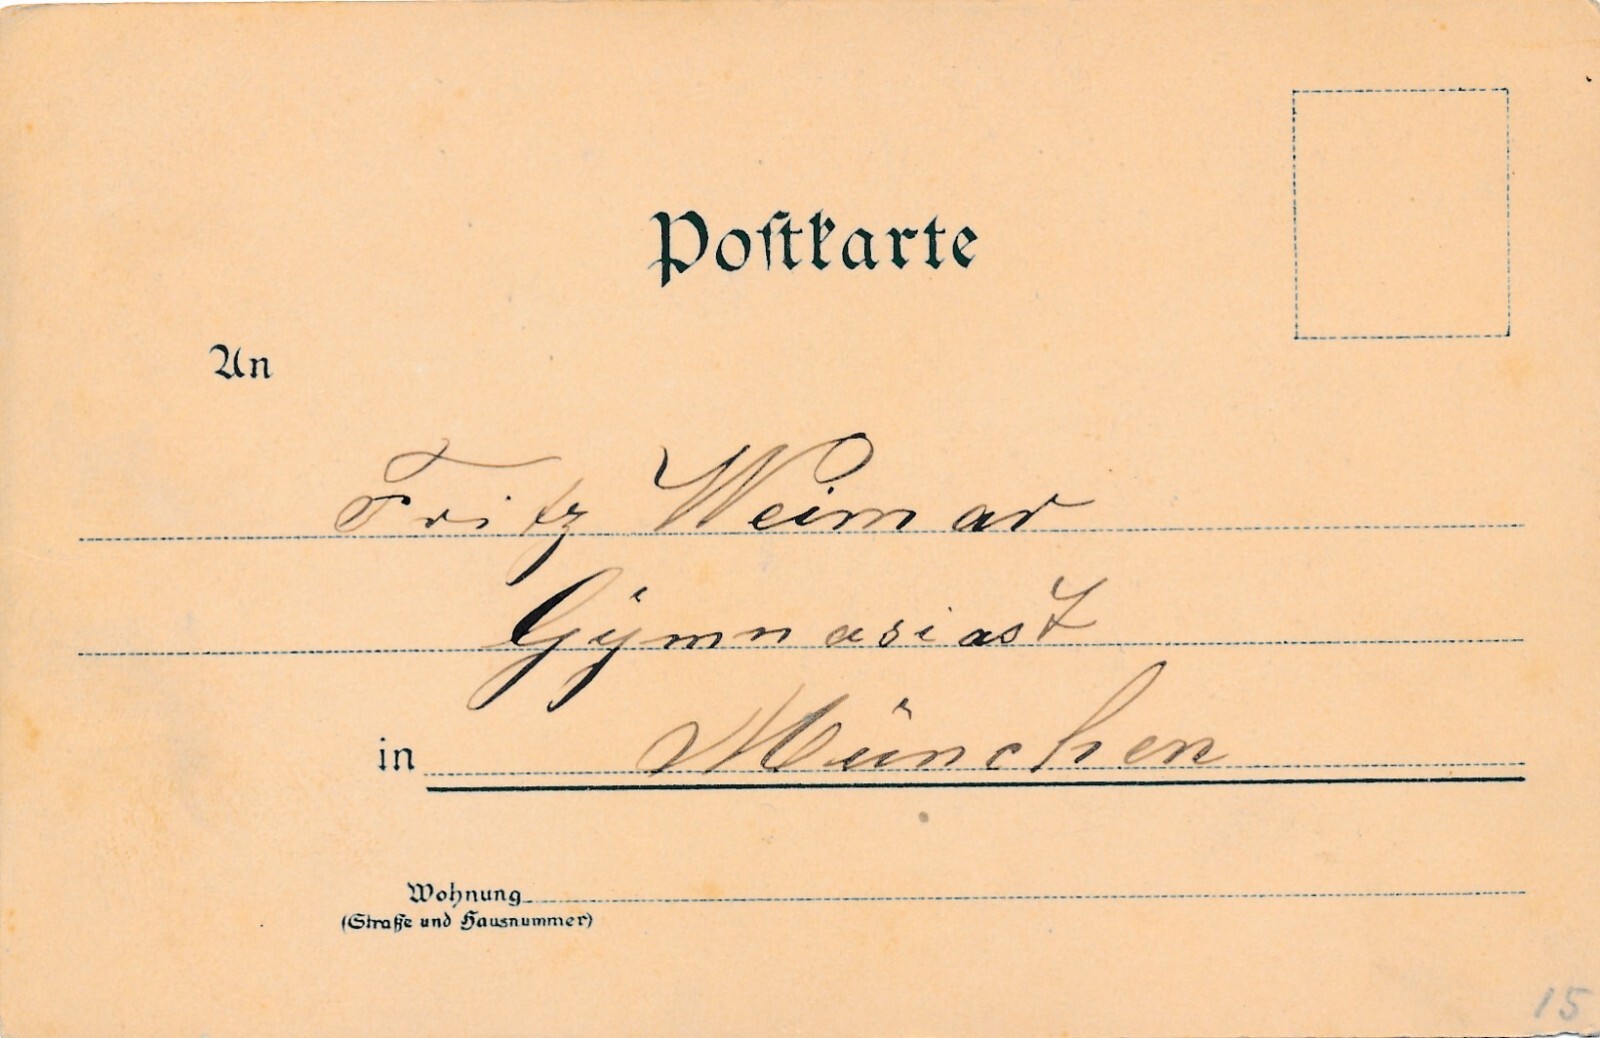 Postkarte
An
Fritz Weimar
Gymnasiast
in München
Wohnung
(Straße und Hausnummer)
15